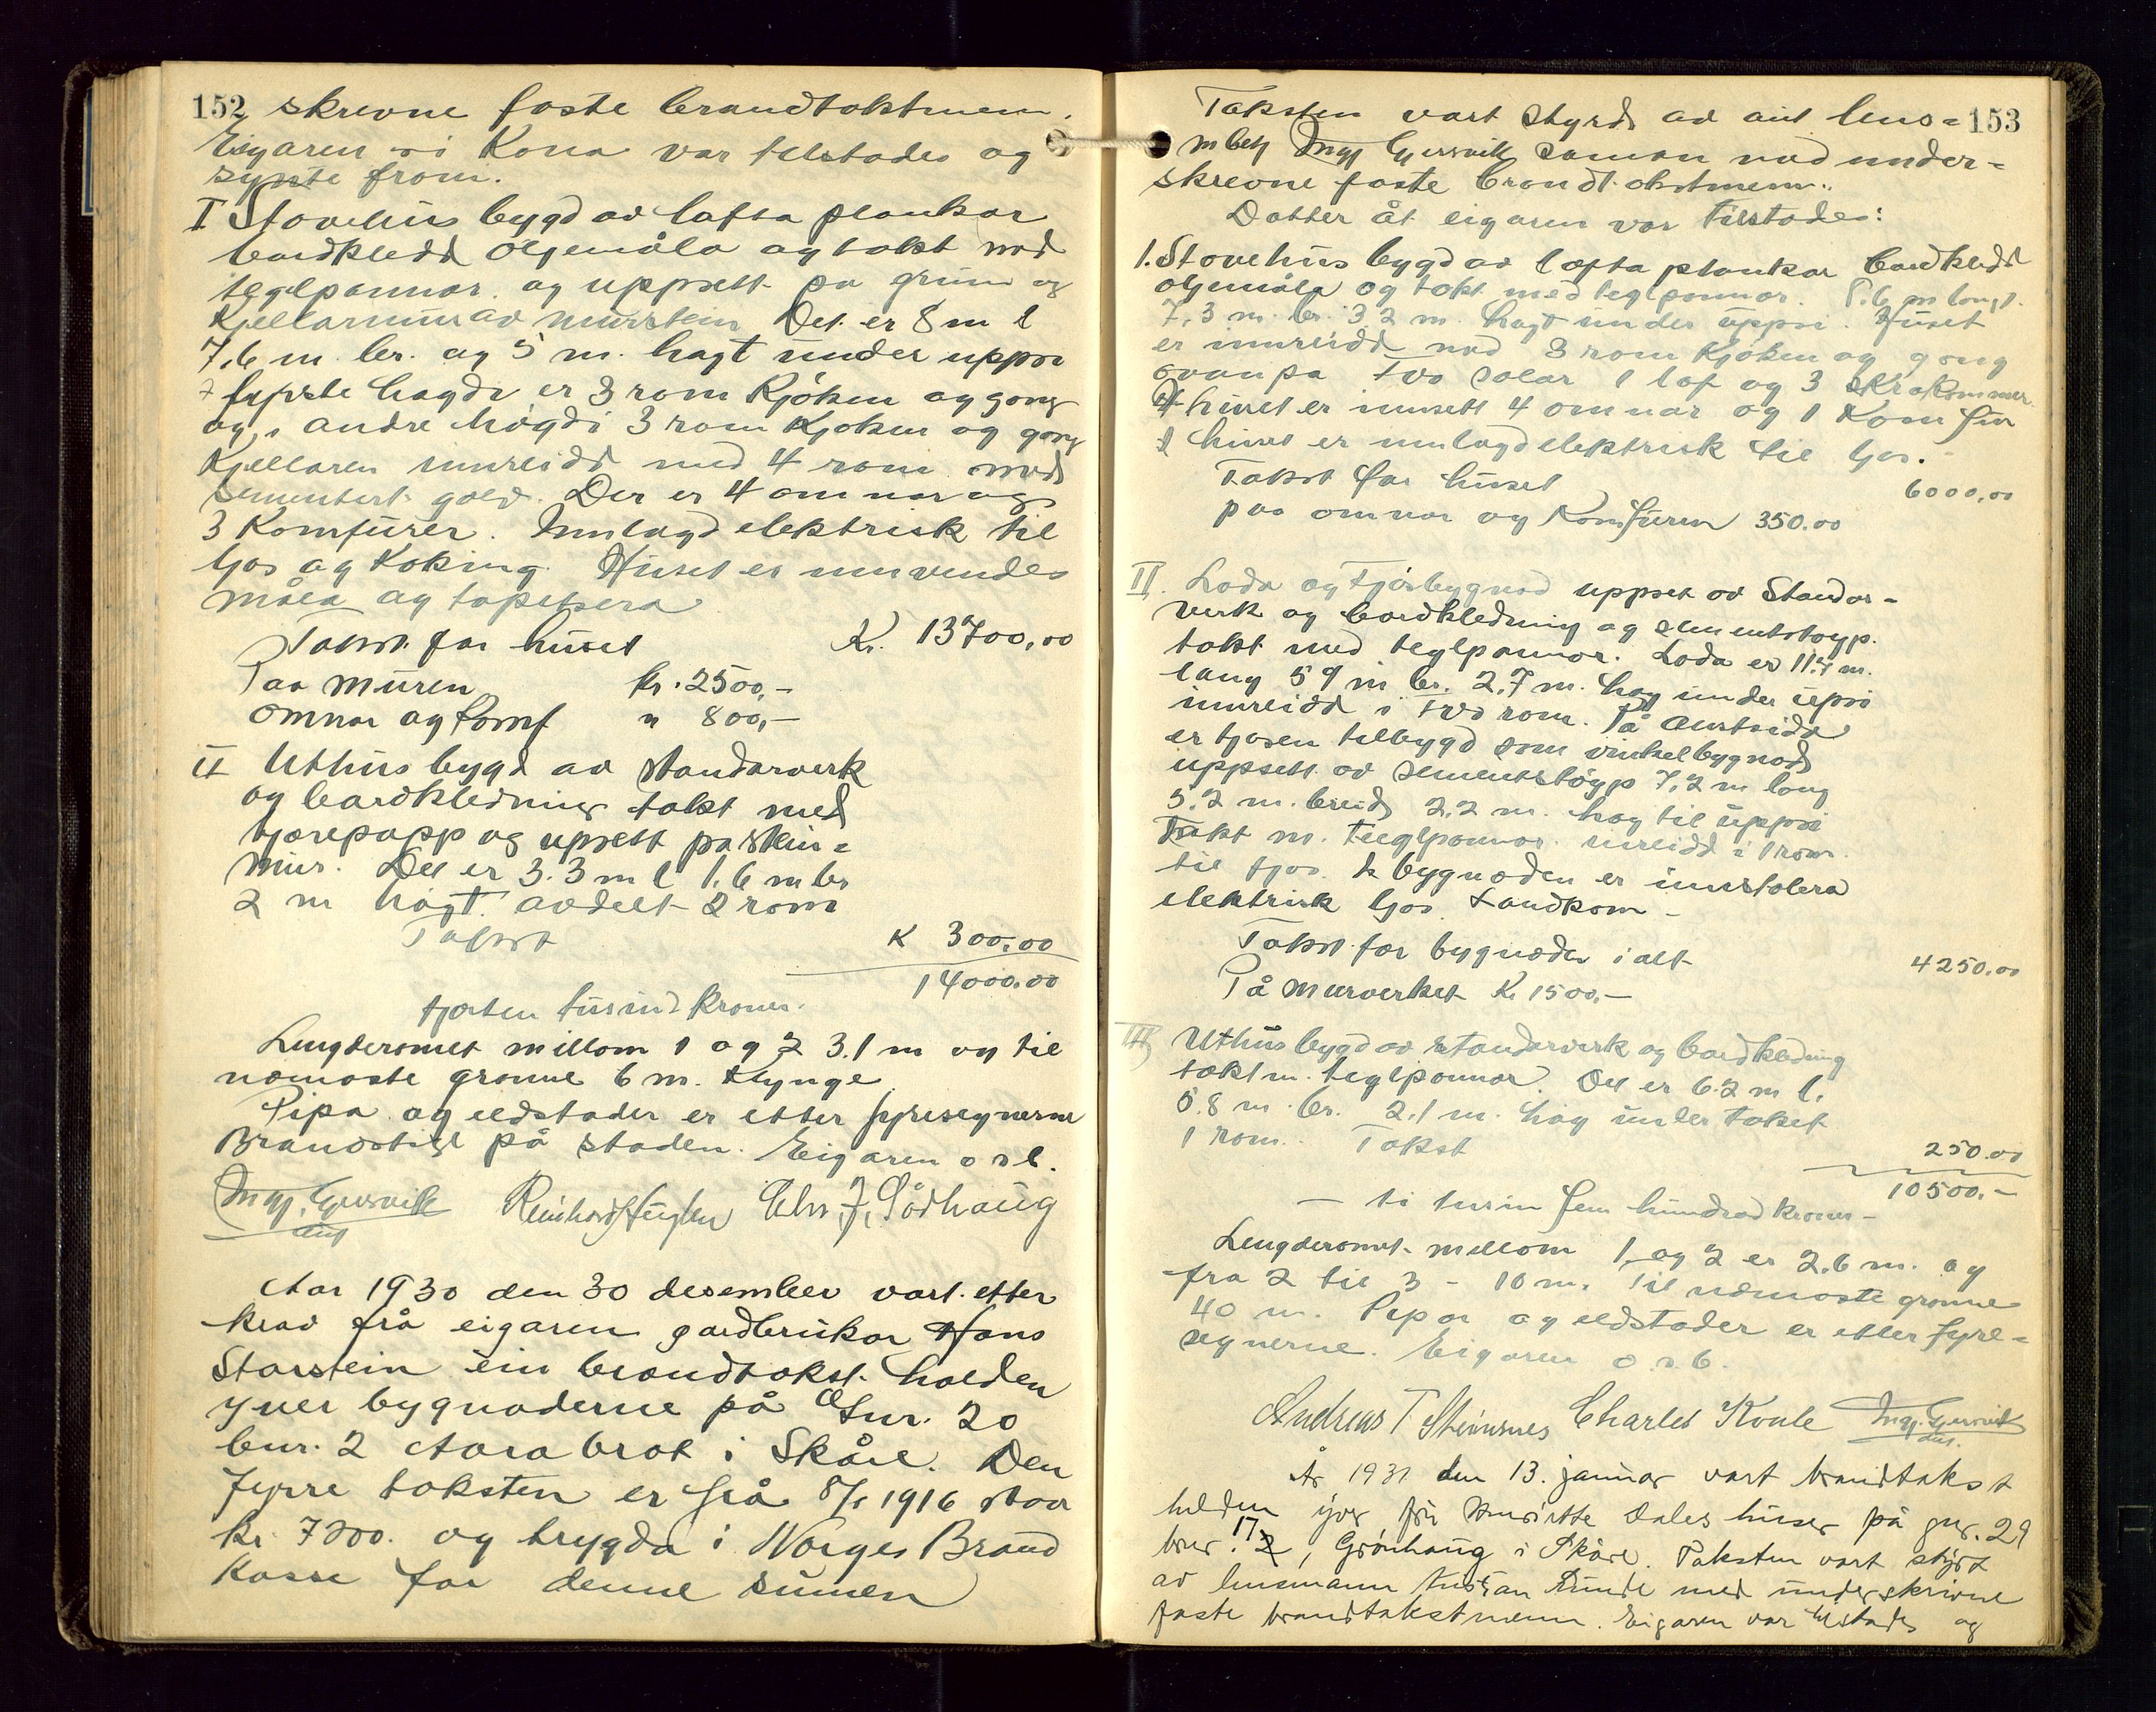 152 skrevne faste brandtakstmenn.
Eigaren si Kona var tilstades og
synte fram.
I Stovehus bygd av lafta plankar
bordkledd oljemåla og takt med
teglpannor og uppsett pa grunn og
Kjellarmur av murstein Det er 8 m l
7,6 m. br. og 5 m. hagt under uppsi
I fyrste hagdi er 3 rom Kjøken og gong
og i andre høgdi 3 rom Kjøken og gong
Kjellaren innreidd med 4 rom med
sementert golv. Der er 4 omnar og
3 Komfurer. Innlagd elektrisk til
ljos og Koking. Huset er innvendes
måla og tapetsera
Takst for huset Kr. 13700,00
Paa muren kr. 2500,-
omnar og komf " 800,-
II Uthus bygd av standarverk
og bordkledning takt med
tjærepapp og upsett pa stein-
mur. Det er 3.3 m l 1.6 m br
2 m høgt. avdelt 2 rom
Takst K 300.00
14000.00
fjorten tusind kroner.
Lengderomet millom 1 og 2 3.1 m og til
næmaste granne 6 m. Klynge
Pipa og eldstader er etter fyresegnerne
Brandstige på staden. Eigaren o s b.
Ingj. Gjersvik Reinhard Fuglen Chr. J. Sørhaug
Aar 1930 den 30 desember vart etter
krav frå eigaren gardbrukar Hans
Starstein ein brandtakst halden
yver bygnaderne på Gnr. 20
bnr. 2 Aarabrot i Skåre. Den
fyrre taksten er frå 8/5 1916 stor
kr 7200. og trygda i Norges Brand
Kasse for denne sumen
Taksten vart styrd av aut lens- 153
m btj Ingj Gjersvik saman med under-
skrevne faste brandtakstmenn.
Dotter åt eigaren var tilstades:
1. Stovehus bygd av lafta plankar bordkledd
oljemåla og takt med teglpannor. 8.6 m langt.
7,3 m. br. 3 2 m. høgt under uppsi. Huset
er innreidd med 3 rom Kjøken og gong
ovanpa tvo salar 1 lof og 3 skrakammer
I huset er innsett 4 omnar og 1 Komfur
I huset er innlagd elektrisk til ljos.
Takst for huset 6000,00
paa omnar og Komfuren 350.00
II. Loda og Fjosbygnad uppset av Standar-
verk og bordkledning og sementstøyp.
takt med teglpannor. Loda er 11.4 m.
lang 5 9 m br. 2.7 m. høg under upsi
innreidd i tvo rom. På Austsida
er fjosen tilbygd som vinkelbygnad
uppsett av sementstøyp 7,2 m lang
5.2 m. breid 2.2 m. høg til uppsi
Takt m. teglpannor. inreidd i 1 rom
til fjos. I bygnaden er innstalera
elektrisk ljos. Landkom -
Takst for bygnaden i alt 4250.00
På murverket Kr 1500.-
III Uthus bygd av standarverk og bordkledning
takt m. teglpannor. Det er 6.2 m l.
5.8 m. br. 2.1 m. høg under taket
1 rom. Takst 250.00
10500.-
- ti tusin fem hundrad kroner -
Lengderomet millom 1 og 2 er 2.6 m. og
fra 2 til 3 - 10 m. Til næmaste granne
40 m. Pipor og eldstader er etter fyre-
segnerne. Eigaren o s b.
Andreas T Steinsnes Charles Konle Ingj. Gjersvik
År 1931 den 13. januar vart brandtakst
helden yver fru Henriette Dales huser på gnr. 29
bnr. 17, Grønhaug i Skåre. Taksten vart styrt
av lensmann Kristian Runde med underskrivne
faste brandtakstmenn. Eigaren var tilstades og